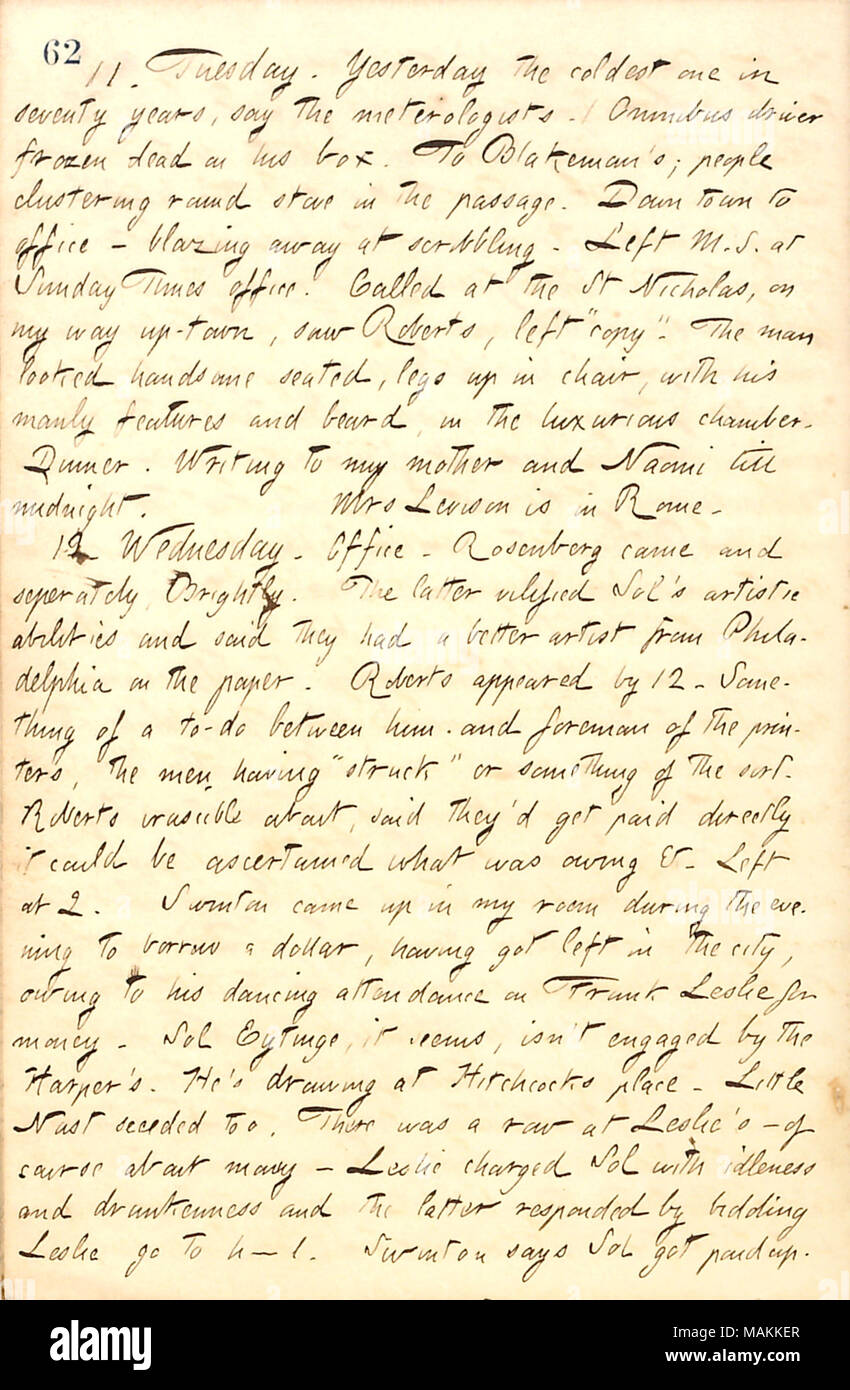 62
11. Tuesday. Yesterday the coldest one in
seventy years, say the meterologists. Omnibus driver
frozen dead on his box. To Blakeman's; people
clustering round stove in the passage. Down town to
office - blazing away at scribbling. Left M.S. at
Sunday Times office. Called at the St Nicholas, on
my way up-town, saw Roberts, left "copy". The man
looked handsome seated, legs up in chair, with his
manly features and beard, in the luxurious chamber.
Dinner. Writing to my mother and Naomi till
midnight. Mrs Levison is in Rome.
12. Wednesday. Office. Rosenberg came and
seperately, Brightly. The latter vilified Sol's artistic
abilities and said they had a better artist from Phila-
delphia on the paper. Roberts appeared by 12. Some-
thing of a to-do between him and foreman of the prin-
ters, the men having "struck" or something of the sort.
Roberts irascible about, said they'd get paid directly
it could be ascertained what was owing &. Left
at 2. Swinton came up in my room during the eve-
ning to borrow a dollar, having got left in the city,
owing to his dancing attendance on Frank Leslie for
money. Sol Eytinge, it seems, isn't engaged by the
Harper's. He's drawing at Hitchcocks place. Little
Nast seceded too. There was a row at Leslie's - of
course about money - Leslie charged Sol with idleness
and drunkenness and the latter responded by bidding
Leslie go to h—l. Swinton says Sol got paid up.
alamy
Image ID: MAKKER
www.alamy.com